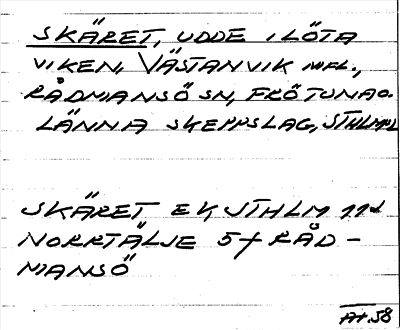 SKÄRET, UDDE I LÖTA
VIKEN, VÄSTANVIK MFL.,
RÅDMANSÖ SN, FRÖTUNA O.
LÄNNA SKEPPSLAG, STHLMSL
SKÄRET EK, STHLM 11d
NORRTÄLJE 5f RÅD-
MANSÖ
AH.58